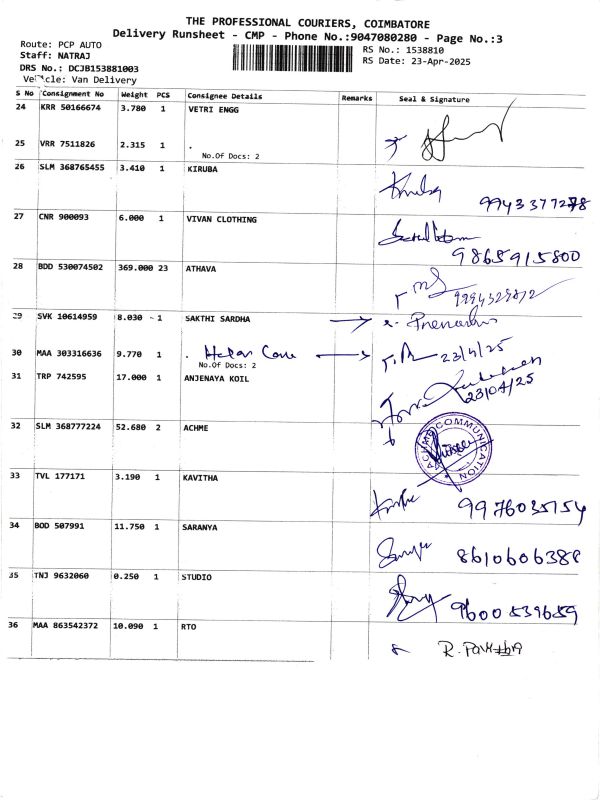 THE PROFESSIONAL COURIERS, COIMBATORE
Delivery Runsheet - CMP - Phone No.:9047080280 - Page No.:3
Route: PCP AUTO
Staff: NATRAJ
DRS No.: DCJB153881003
Vehicle: Van Delivery
RS No.: 1538810
RS Date: 23-Apr-2025
S No Consignment No Weight PCS Consignee Details Remarks Seal & Signature
24 KRR 50166674 3.780 1 VETRI ENGG
25 VRR 7511826 2.315 1 .
No.Of Docs: 2
26 SLM 368765455 3.410 1 KIRUBA
9943377278
27 CNR 900093 6.000 1 VIVAN CLOTHING
9865915800
28 BDD 530074502 369.000 23 ATHAVA
29 SVK 10614959 8.030 1 SAKTHI SARDHA
30 MAA 303316636 9.770 1 . 23/4/25
No.Of Docs: 2
31 TRP 742595 17.000 1 ANJENAYA KOIL
23/04/25
32 SLM 368777224 52.680 2 ACHME
ACHME COMMUNICATION
33 TVL 177171 3.190 1 KAVITHA
9976035154
34 BOD 507991 11.750 1 SARANYA
8610606388
35 TNJ 9632060 0.250 1 STUDIO
9600539659
36 MAA 863542372 10.090 1 RTO